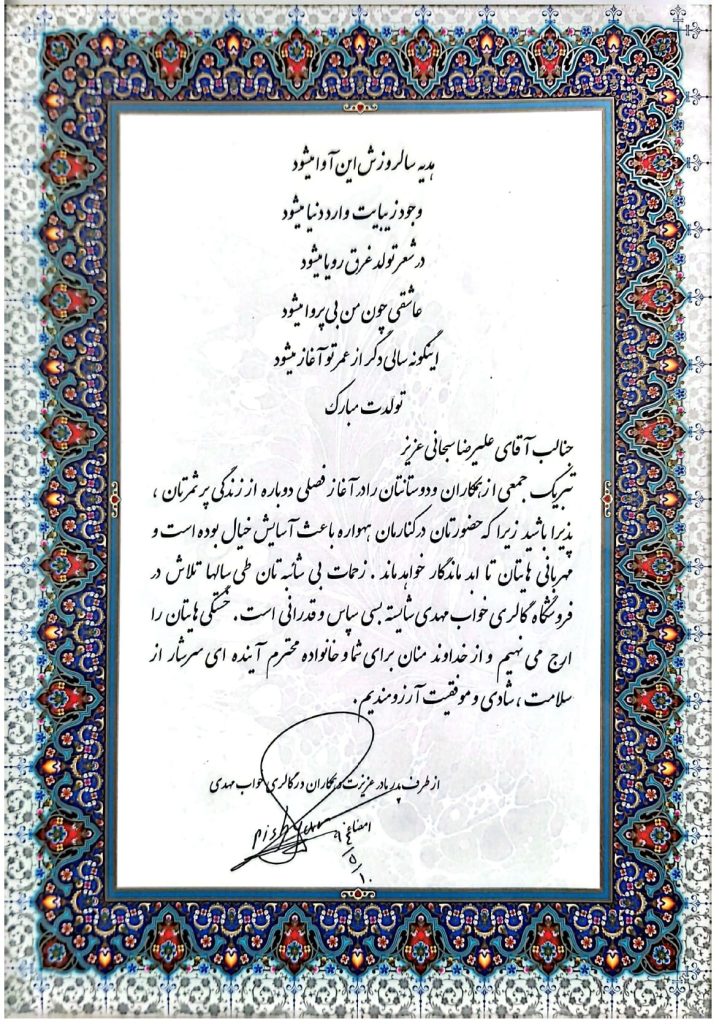 هدیه سالروزش این آوا میشود
وجود زیبایت وارد دنیا میشود
در شعر تولد غرق رویا میشود
عاشقی چون من بی پروا میشود
اینگونه سالی دگر از عمر تو آغاز میشود
تولدت مبارک
جناب آقای علیرضا سبحانی عزیز
تبریک جمعی از همکاران و دوستانتان را در آغاز فصلی دوباره از زندگی پرثمرتان ،
پذیرا باشید زیرا که حضورتان در کنارمان همواره باعث آسایش خیال بوده است و
مهربانی هایتان تا ابد ماندگار خواهد ماند . زحمات بی شائبه تان طی سالها تلاش در
فروشگاه گالری خواب مهدی شایسته بسی سپاس و قدردانی است . خستگی هایتان را
ارج می نهیم و از خداوند منان برای شما و خانواده محترم آینده ای سرشار از
سلامت ، شادی و موفقیت آرزومندیم .
از طرف پدر مادر عزیزت و همکاران در گالری خواب مهدی
امضاء
۹۴/۵/۱۰